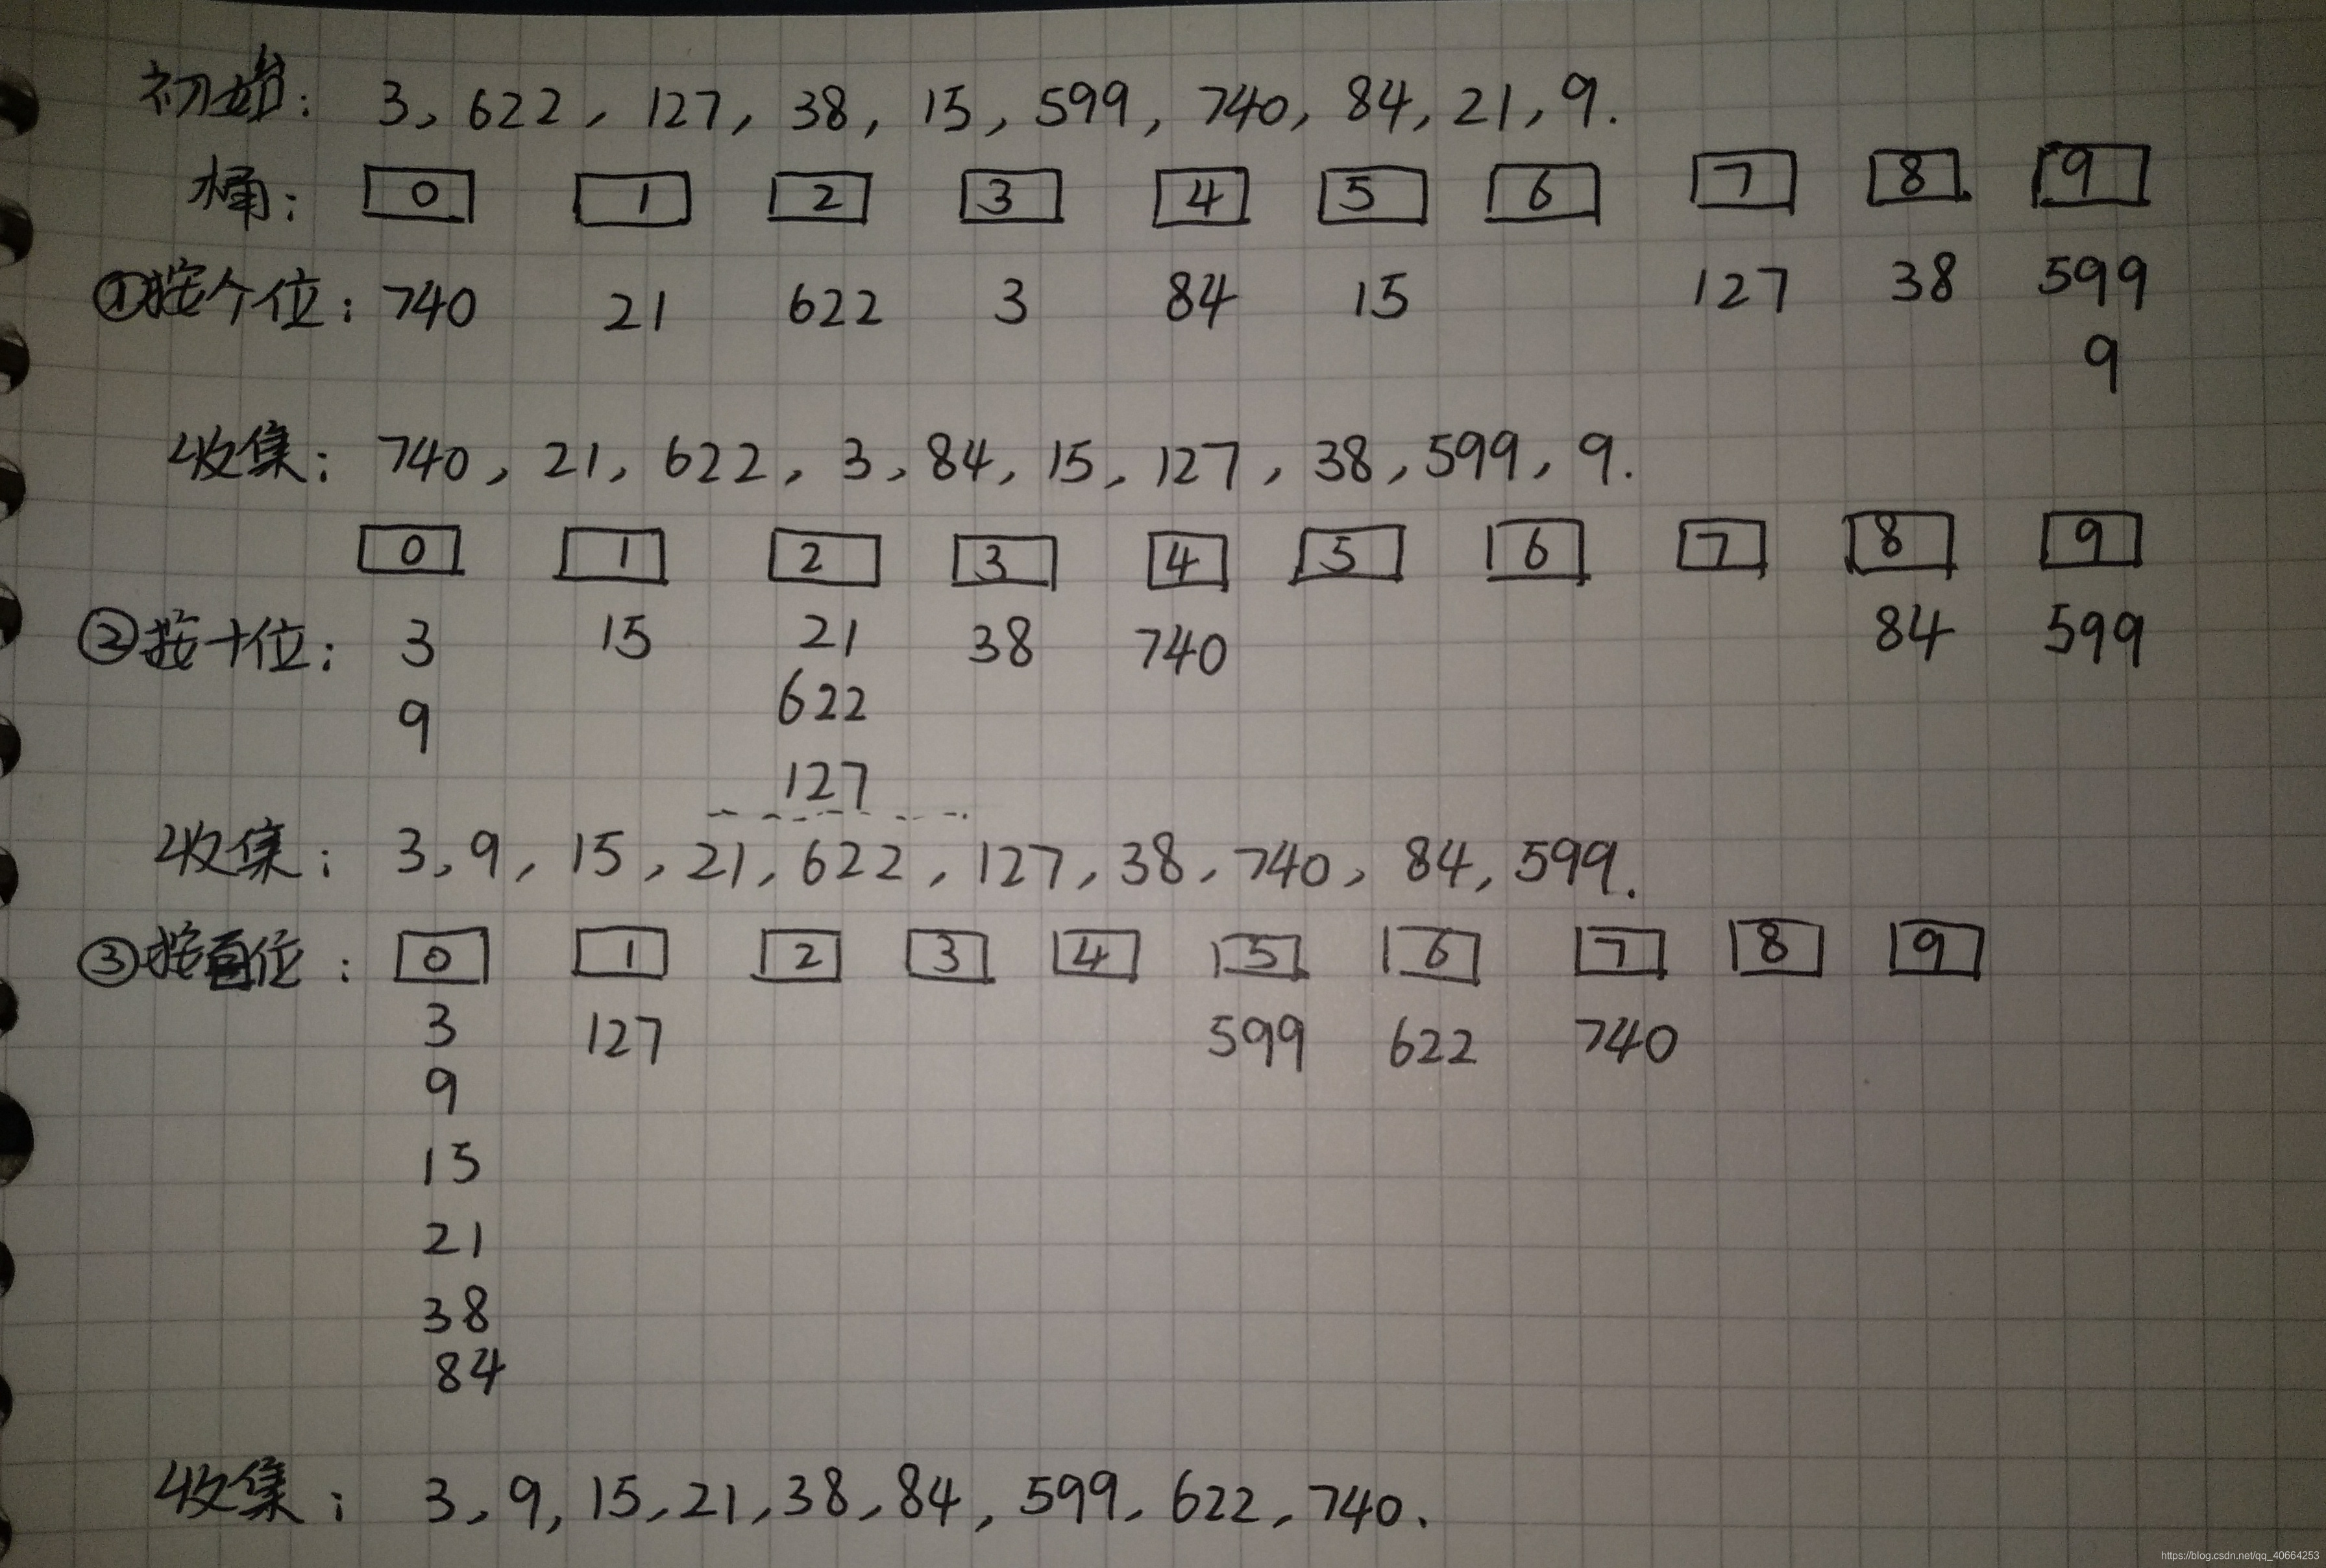 初始: 3, 622, 127, 38, 15, 599, 740, 84, 21, 9.
桶: 0 1 2 3 4 5 6 7 8 9
①按个位: 740 21 622 3 84 15 127 38 599
9
收集: 740, 21, 622, 3, 84, 15, 127, 38, 599, 9.
0 1 2 3 4 5 6 7 8 9
②按十位: 3 15 21 38 740 84 599
9 622
127
收集: 3, 9, 15, 21, 622, 127, 38, 740, 84, 599.
③按百位: 0 1 2 3 4 5 6 7 8 9
3 127 599 622 740
9
15
21
38
84
收集: 3, 9, 15, 21, 38, 84, 599, 622, 740.
https://blog.csdn.net/qq_40664253